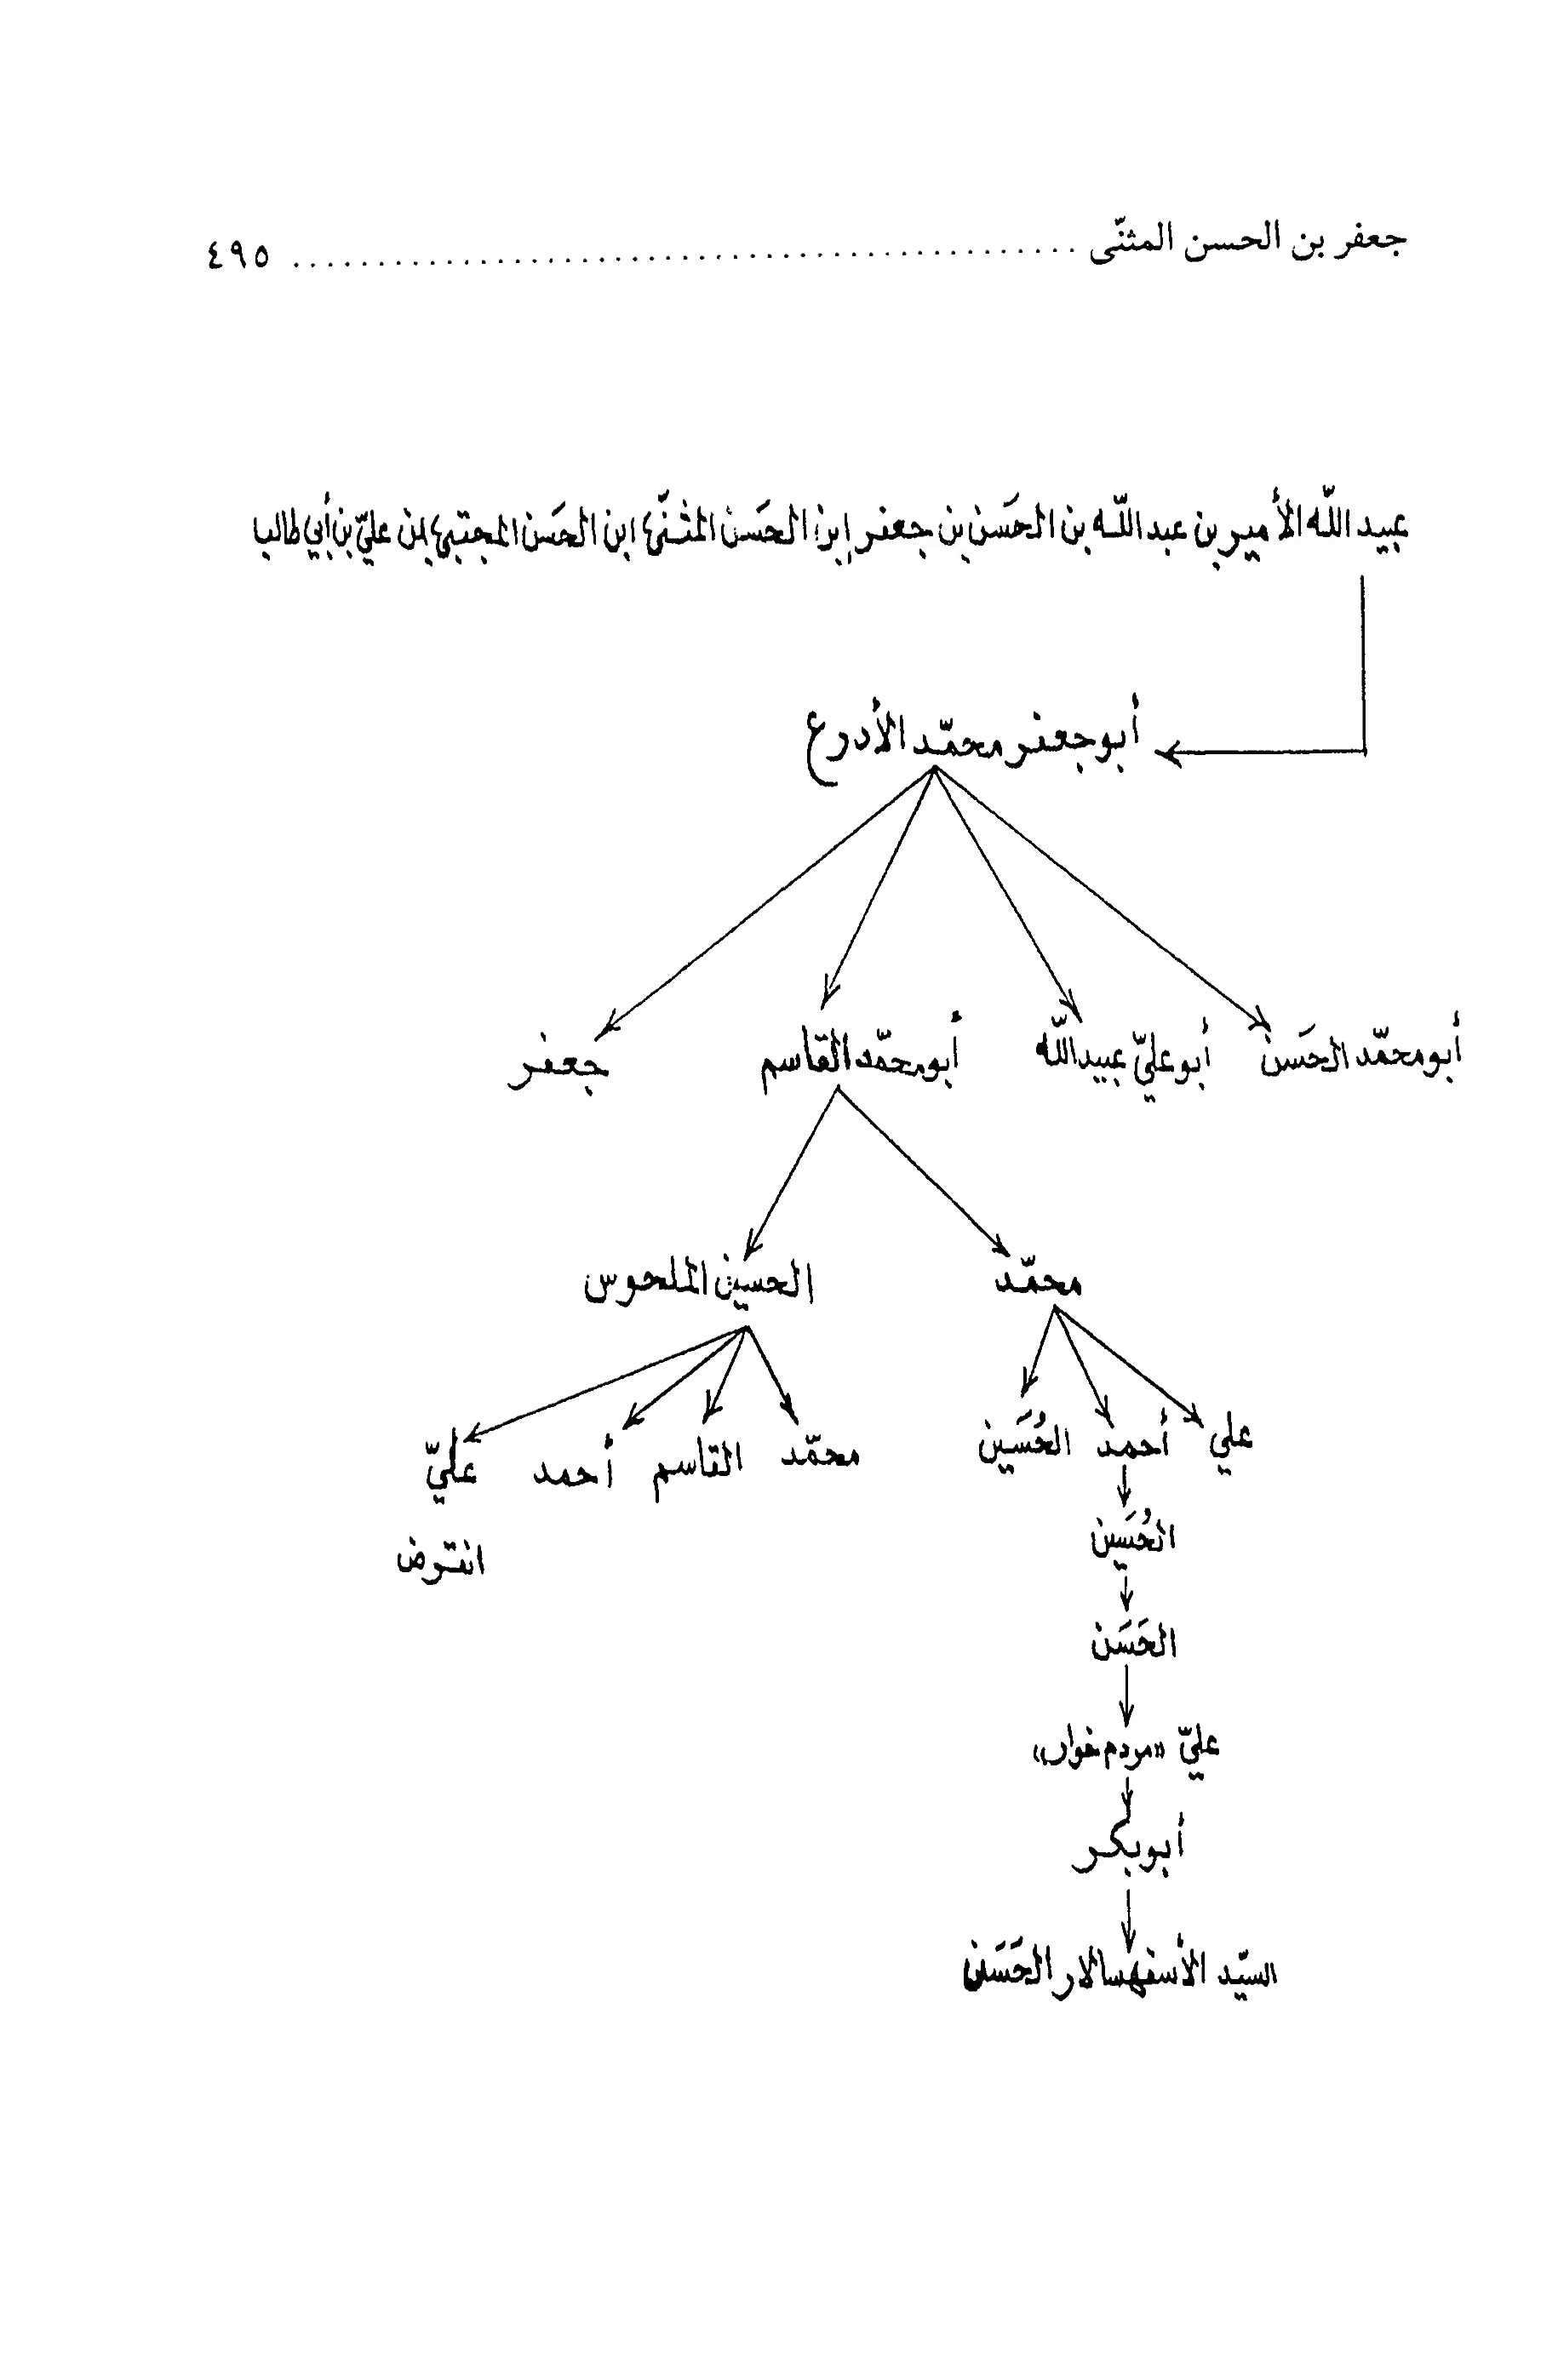 جعفر بن الحسن المثنّى ........................................ ٤٩٥
عبيد اللّه الأمير بن عبد اللّه بن الحَسَن بن جعفر إبن الحَسَن المثنّى ابن الحَسَن المجتبى ابن عليّ بن أبي طالب
أبو جعفر محمّد الأدرع
أبو محمّد الحَسَن أبو عليّ عبيد اللّه أبو محمّد القاسم جعفر
محمّد الحسين الملحوس
علي أحمد الحُسَين محمّد القاسم أحمد عليّ
الحُسَين انقرض
الحَسَن
عليّ «مردم خوار»
أبو بكر
السيّد الأسفهسالار الحَسَن